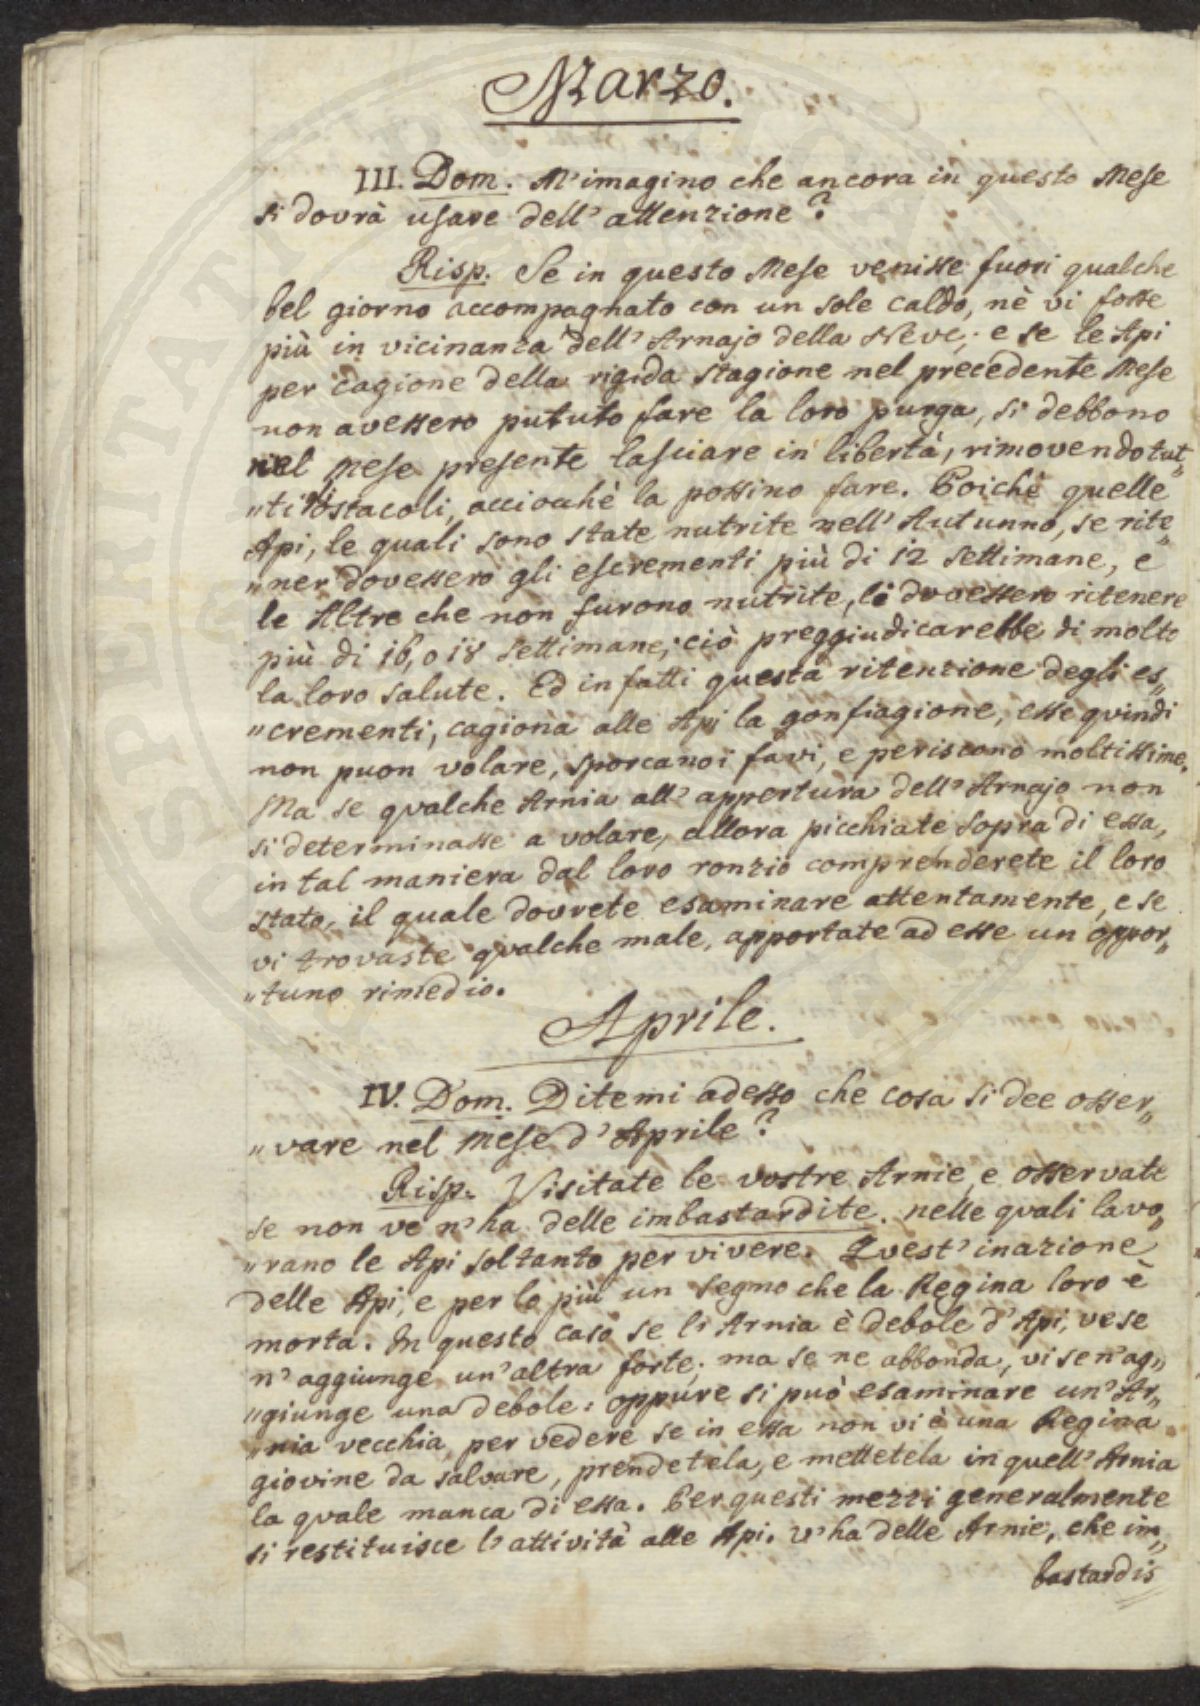 Marzo.
III. Dom. M'imagino che ancora in questo Mese
si dovrà usare dell'attenzione?
Risp. Se in questo Mese venisse fuori qualche
bel giorno accompagnato con un sole caldo, nè vi fosse
più in vicinanza dell'Arnajo della Neve; e se le Api
per cagione della rigida stagione nel precedente Mese
non avessero pututo fare la loro purga, si debbono
nel Mese presente lasciare in libertà, rimovendo tut„
„ti l'ostacoli, acciochè la possino fare. Poichè quelle
Api, le quali sono state nutrite nell'Autunno, se rite„
„ner dovessero gli escrementi più di 12 settimane, e
le Altre che non furono nutrite, li dovessero ritenere
più di 16, o 18 settimane; ciò preggiudicarebbe di molto
la loro salute. Ed in fatti questa ritenzione degli es„
„crementi, cagiona alle Api la gonfiagione, esse quindi
non puon volare, sporcano i favi, e periscono moltissime.
Ma se qualche Arnia all'appertura dell'Arnajo non
si determinasse a volare, allora picchiate sopra di essa,
in tal maniera dal loro ronzio comprenderete il loro
stato, il quale dovrete esaminare attentamente, e se
vi trovaste qualche male, apportate ad esse un oppor„
„tuno rimedio.
Aprile.
IV. Dom. Ditemi adesso che cosa si dee osser„
„vare nel Mese d'Aprile?
Risp. Visitate le vostre Arnie, e osservate
se non ve n'ha delle imbastardite, nelle quali lavo„
„rano le Api soltanto per vivere. Quest'inazione
delle Api, e per lo più un segno che la Regina loro è
morta. In questo caso se l'Arnia è debole d'Api, ve se
n'aggiunge un'altra forte; ma se ne abbonda, vi se n'ag„
„giunge una debole: oppure si può esaminare un'Ar„
„nia vecchia, per vedere se in essa non vi è una Regina
giovine da salvare, prendetela, e mettetela in quell'Arnia
la quale manca di essa. Per questi mezzi generalmente
si restituisce l'attività alle Api. V'ha delle Arnie, che im„
bastardis